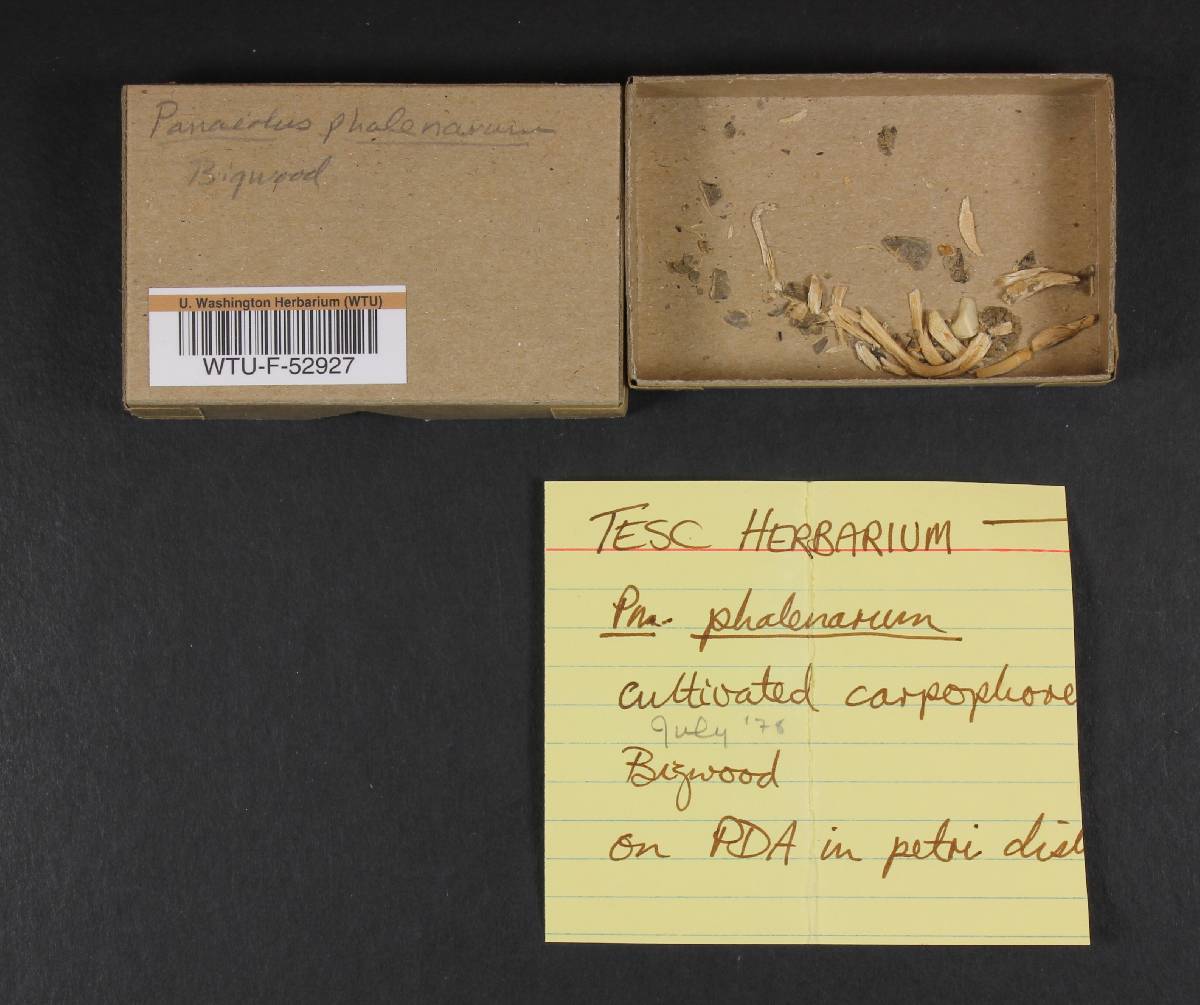 Panaeolus phalenarum
Bigwood
U. Washington Herbarium (WTU)
WTU-F-52927
TESC HERBARIUM —
Pn. phalenarum
cultivated carpophore
July '78
Bigwood
on PDA in petri dish